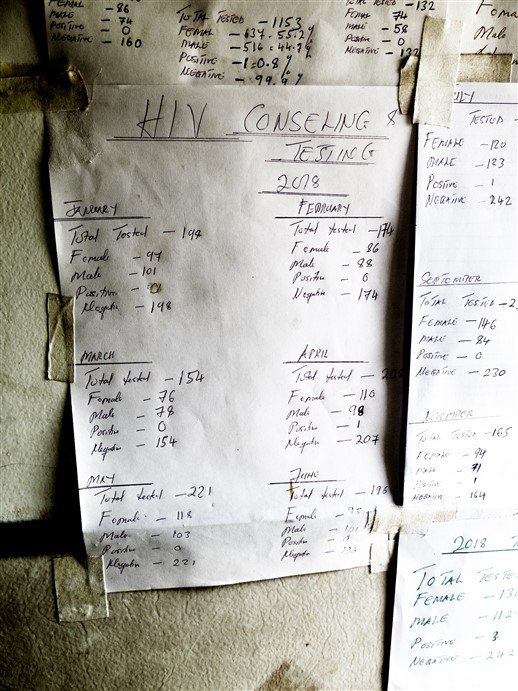 - 86
MALE - 74
POSITIVE - 0
NEGATIVE - 160
TOTAL TESTED - 1153
FEMAL - 637 = 55.2%
MALE - 516 = 44.7%
POSITIVE - 1 = 0.8%
NEGATIVE - 99.9%
TOTAL TESTED - 132
FEMAL 74
MALE - 58
POSITIVE - 0
NEGATIVE - 132
Male
HIV CONSELING &
TESTING
2018
JANUARY
Total Tested - 198
Female - 97
Male - 101
Positive - 0
Negative - 198
FEBRUARY
Total tested - 174
Female - 86
Male - 88
Positive - 0
Negative - 174
MARCH
Total tested - 154
Female - 76
Male - 78
Positive - 0
Negative - 154
APRIL
Total tested - 208
Female - 110
Male - 98
Positive - 1
Negative - 207
MAY
Total tested - 221
Female - 118
Male - 103
Positive - 0
Negative - 221
Total tested - 196
Female - 95
Male - 101
Positive - 0
Negative - 196
TESTED -
FEMALE - 120
MALE - 123
POSITIVE - 1
NEGATIVE - 242
SEPTEMBER
TOTAL TESTED - 2
FEMALE - 146
MALE - 84
POSITIVE - 0
NEGATIVE - 230
NOVEMBER
TOTAL TESTED - 165
FEMALE - 94
MALE - 71
POSITIVE - 1
NEGATIVE - 164
2018
TOTAL TESTE
FEMALE - 13
MALE - 112
POSITIVE - 3
NEGATIVE - 242